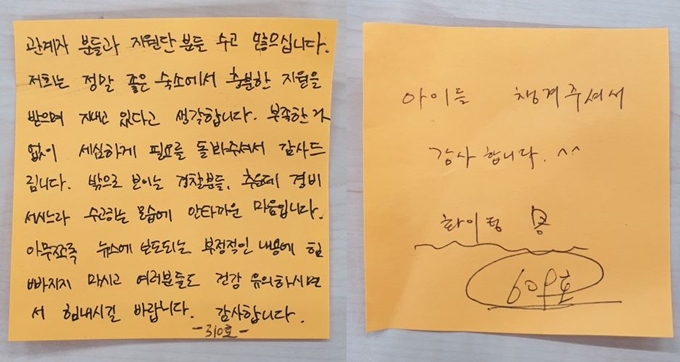 관계자 분들과 지원단 분들 수고 많으십니다.
저희는 정말 좋은 숙소에서 충분한 지원을
받으며 지내고 있다고 생각합니다. 부족한거
없이 세심하게 필요를 돌봐주셔서 감사드
립니다. 밖으로 보이는 경찰분들, 추운데 경비
서시느라 수고하는 모습에 안타까운 마음입니다.
아무쪼록 뉴스에 보도되는 부정적인 내용에 힘
빠지지 마시고 여러분들도 건강 유의하시면
서 힘내시길 바랍니다. 감사합니다.
-310호-
아이들 챙겨주셔서
감사합니다. ^^
화이팅
609호